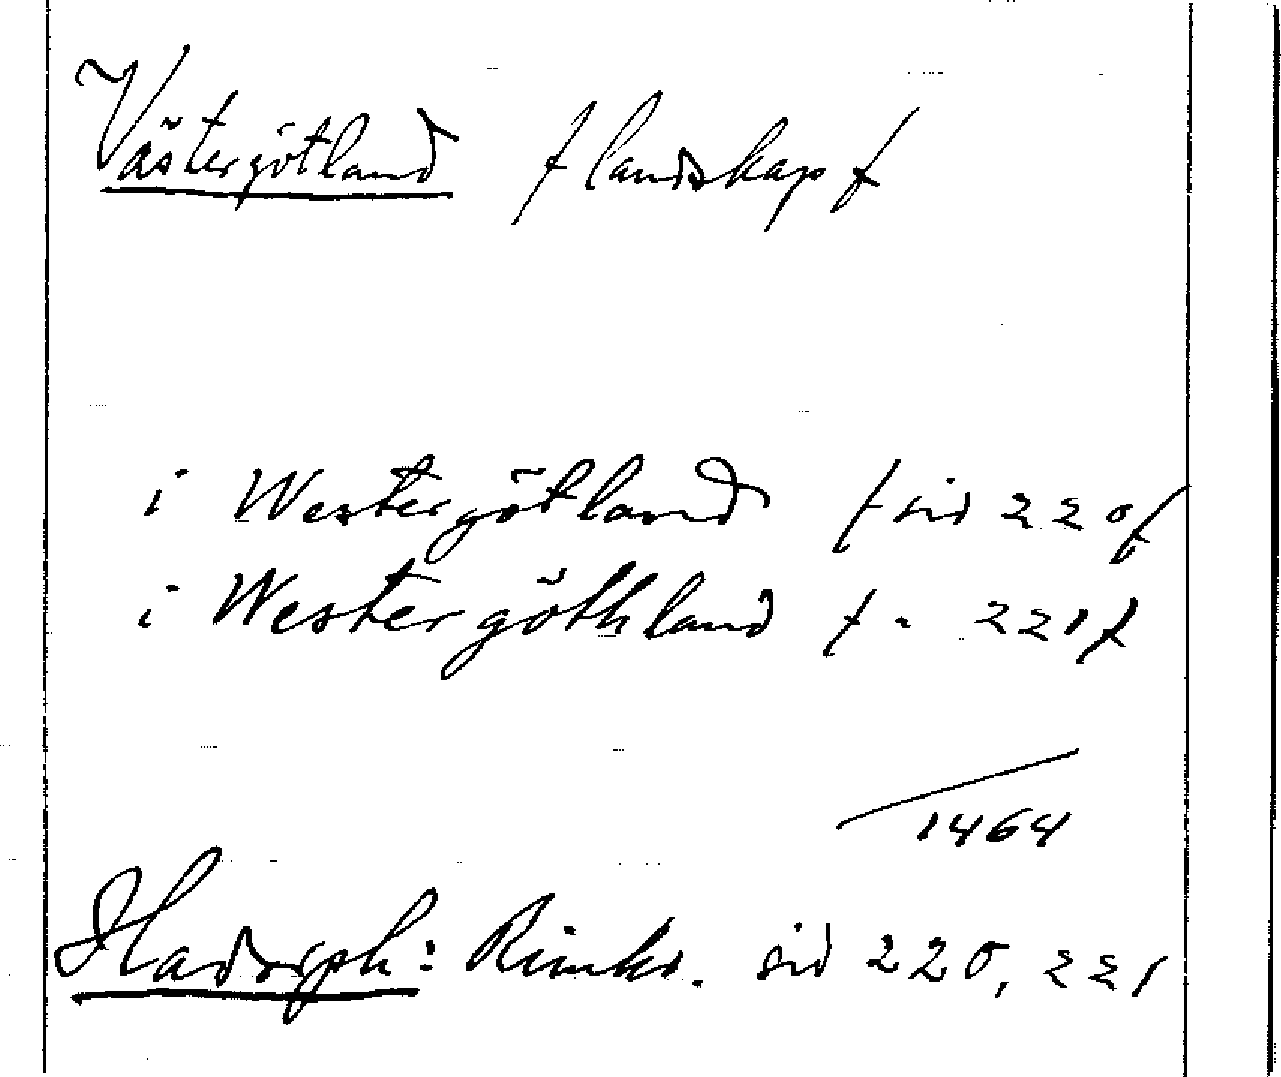 Västergötland /landskap/
i Westergötland /sid 220/
i Westergöthland / - 221/
1464
Hadorph: Rimkr. sid 220, 221